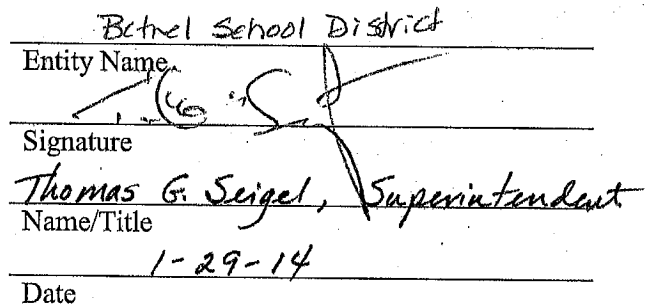 Bethel School District
Entity Name
Signature
Thomas G. Seigel, Superintendent
Name/Title
1-29-14
Date